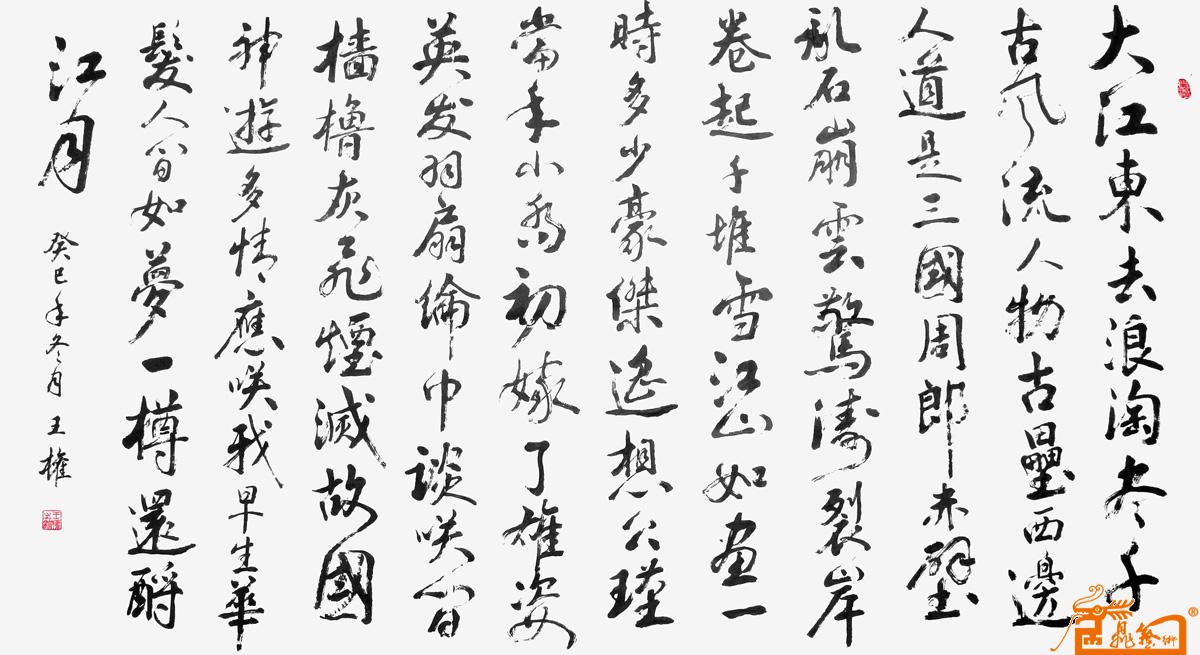 大江東去浪淘尽千
古风流人物古壘西邊
人道是三國周郎赤壁
乱石崩雲驚濤裂岸
卷起千堆雪江山如画一
時多少豪傑遙想公瑾
當年小喬初嫁了雄姿
英发羽扇綸巾談咲間
檣櫓灰飛煙滅故國
神遊多情應咲我早生華
髮人間如夢一樽還酹
江月
癸巳年冬月王權